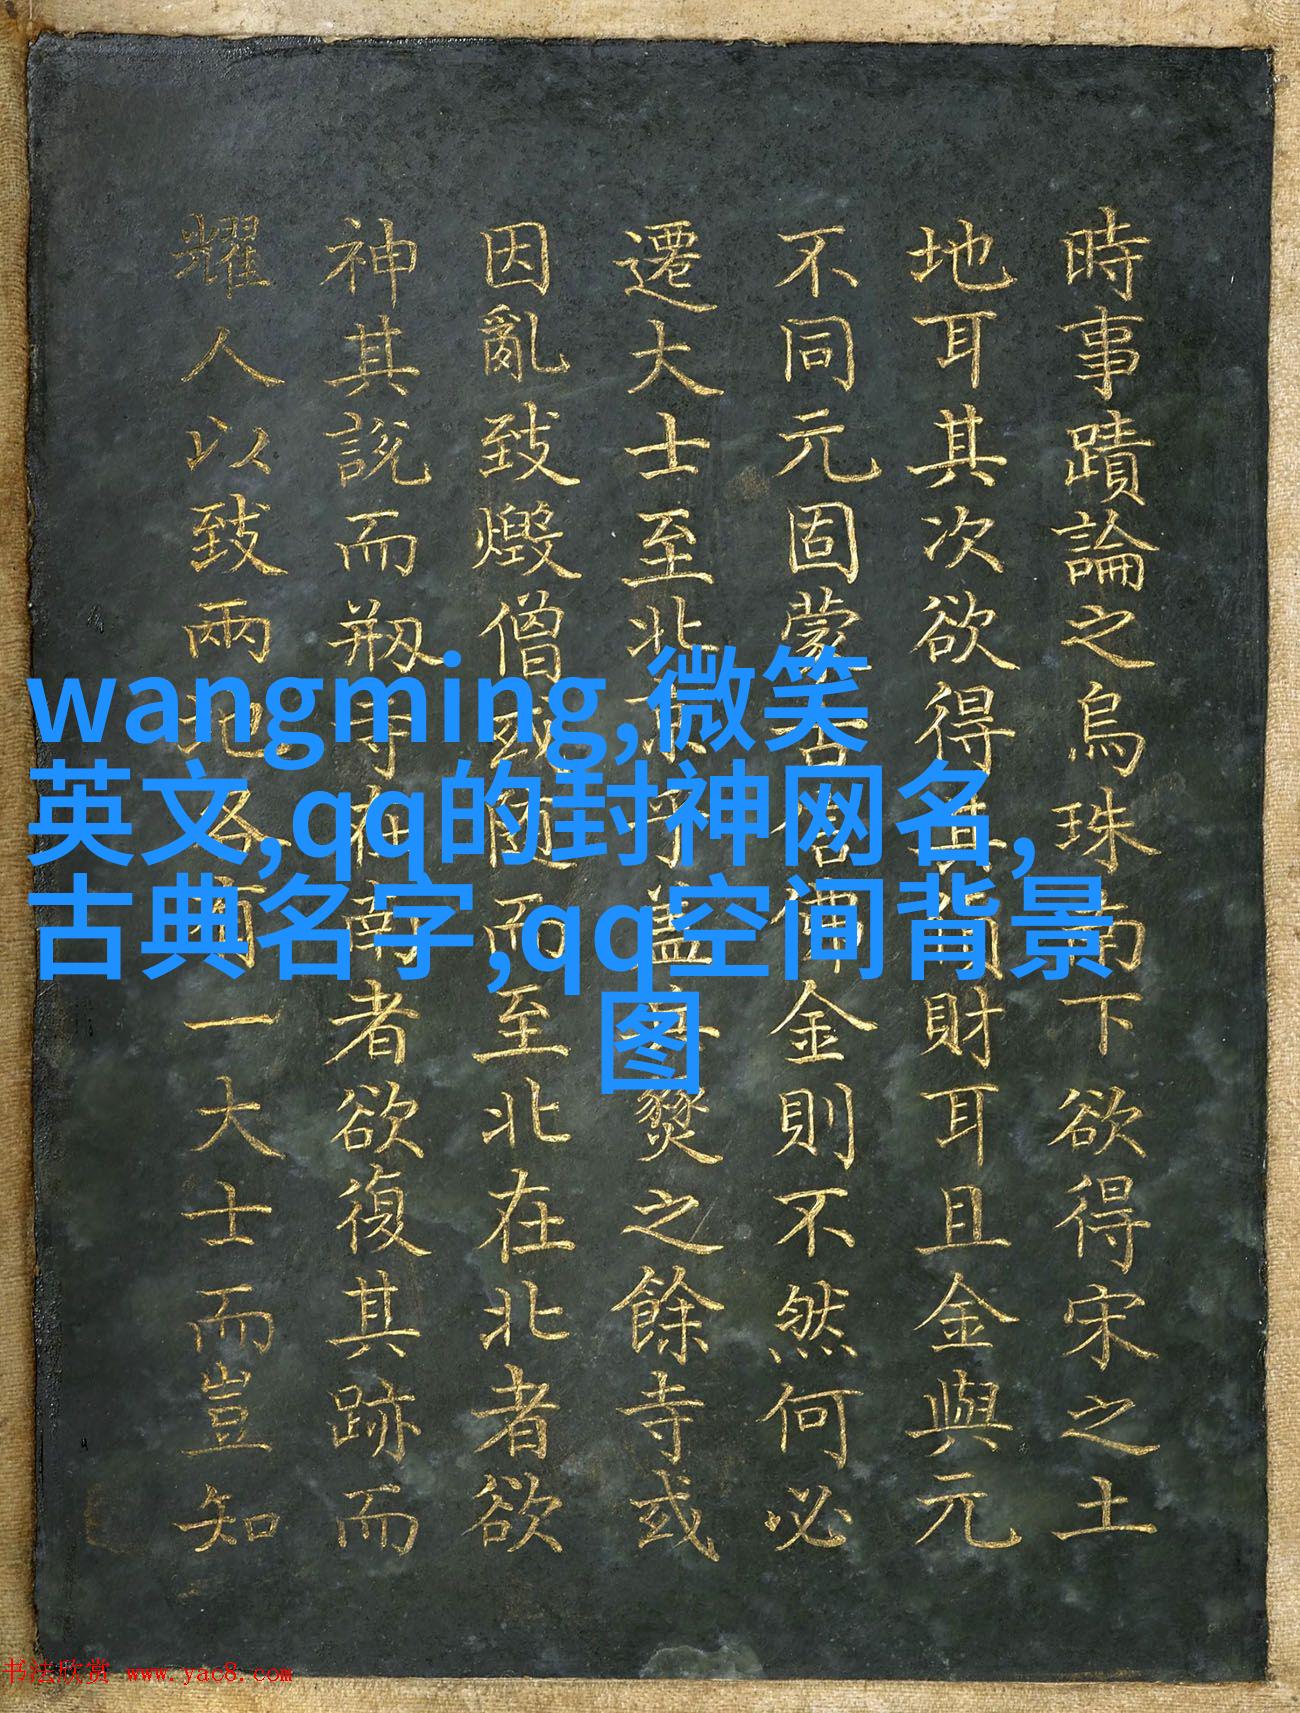 時事蹟論之烏珠南下欲得宋之土
地耳其次欲得其財耳且金與元
不同元固蒙古佛金則不然何必
遷大士至北京乎蓋燹之餘寺或
因亂致燬僧或随而至北在北者欲
神其說而剏寺在南者欲復其跡而
耀人以致兩地各有一大士而豈知
wangming,微笑
英文,qq的封神网名,
古典名字,qq空间背景
图
书法欣赏 www.yac8.com